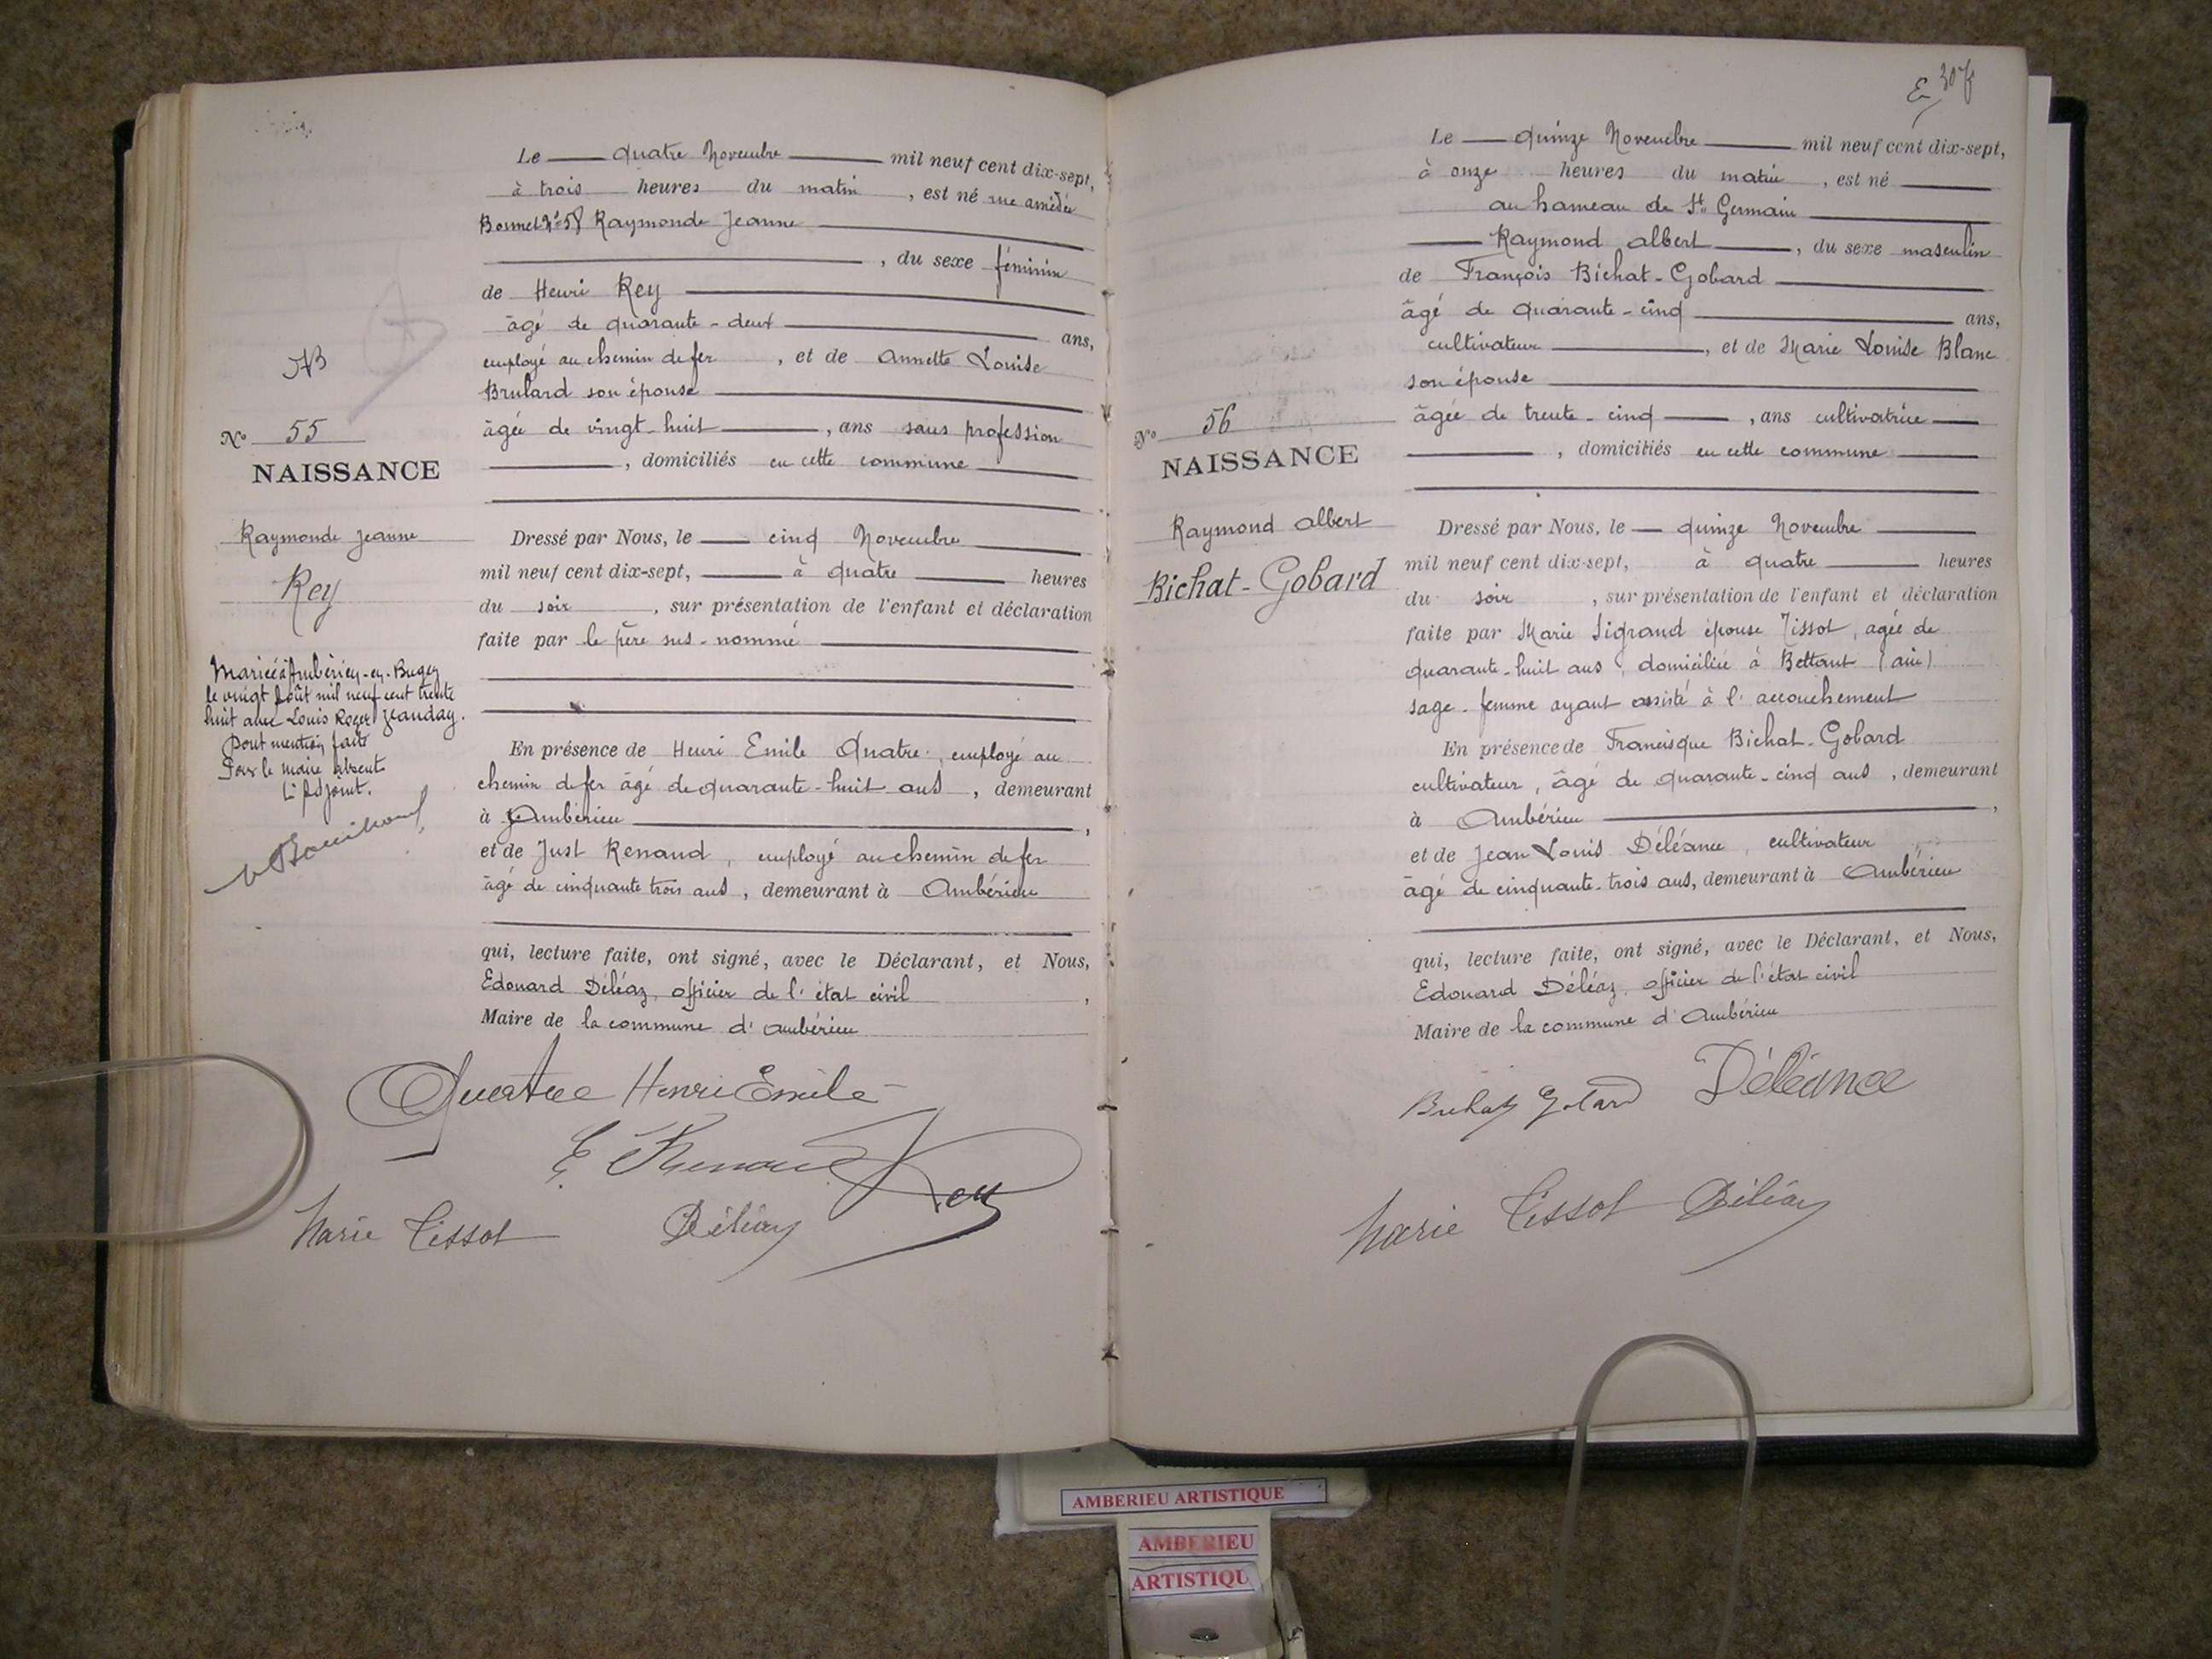 Le quatre Novembre mil neuf cent dix-sept,
à trois heures du matin, est né rue amédée
Bonnet N° 58 Raymonde Jeanne
, du sexe féminin
de Henri Rey
âgé de quarante-deux ans,
employé au chemin de fer, et de Annette Louise
Brulard son épouse
âgée de vingt-huit, ans sans profession
, domiciliés en cette commune
N° 55
NAISSANCE
Raymonde Jeanne
Rey
Mariée à Ambérieu-en-Bugey
le vingt Août mil neuf cent trente
huit avec Louis Roger Jeanday.
Dont mention faite
Pour le maire absent
L'Adjoint.
Dressé par Nous, le cinq Novembre
mil neuf cent dix-sept, à quatre heures
du soir, sur présentation de l'enfant et déclaration
faite par le père sus-nommé
En présence de Henri Emile Quatre, employé au
chemin de fer âgé de quarante-huit ans, demeurant
à Ambérieu,
et de Just Renaud, employé au chemin de fer
âgé de cinquante trois ans, demeurant à Ambérieu
qui, lecture faite, ont signé, avec le Déclarant, et Nous,
Edouard Déléaz, officier de l'état civil,
Maire de la commune d'Ambérieu
Quatre Henri Emile
E Renaud Rey
Marie Tissot Déléaz
E 307
Le quinze Novembre mil neuf cent dix-sept,
à onze heures du matin, est né
au hameau de St Germain
Raymond Albert, du sexe masculin
de François Bichat-Gobard
âgé de quarante-cinq ans,
cultivateur, et de Marie Louise Blanc
son épouse
âgée de trente-cinq, ans cultivatrice
, domiciliés en cette commune
N° 56
NAISSANCE
Raymond Albert
Bichat-Gobard
Dressé par Nous, le quinze Novembre
mil neuf cent dix-sept, à quatre heures
du soir, sur présentation de l'enfant et déclaration
faite par Marie Sigrand épouse Tissot, agée de
quarante-huit ans, domiciliée à Bettant (ain)
sage-femme ayant assisté à l'accouchement
En présence de Francisque Bichat-Gobard
cultivateur, âgé de quarante-cinq ans, demeurant
à Ambérieu,
et de Jean Louis Déléance, cultivateur
âgé de cinquante-trois ans, demeurant à Ambérieu
qui, lecture faite, ont signé, avec le Déclarant, et Nous,
Edouard Déléaz, officier de l'état civil
Maire de la commune d'Ambérieu
Bichat Gobard Déléance
Marie Tissot Déléaz
AMBERIEU ARTISTIQUE
AMBERIEU
ARTISTIQU